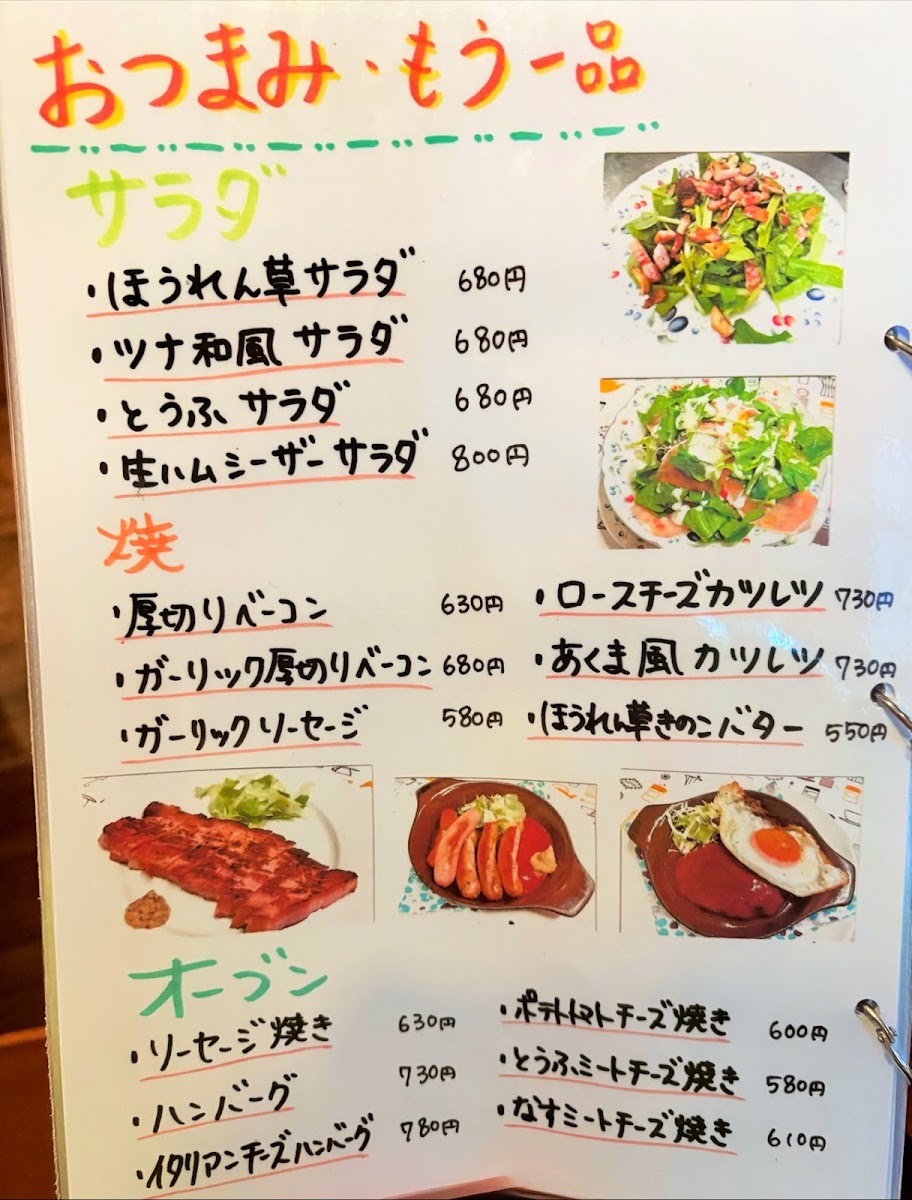 おつまみ・もう一品
サラダ
・ほうれん草サラダ 680円
・ツナ和風サラダ 680円
・とうふサラダ 680円
・生ハムシーザーサラダ 800円
焼
・厚切りベーコン 630円
・ガーリック厚切りベーコン 680円
・ガーリックソーセージ 580円
・ロースチーズカツレツ 730円
・あくま風カツレツ 730円
・ほうれん草きのこバター 550円
オーブン
・ソーセージ焼き 630円
・ハンバーグ 730円
・イタリアンチーズハンバーグ 780円
・ポテトトマトチーズ焼き 600円
・とうふミートチーズ焼き 580円
・なすミートチーズ焼き 610円